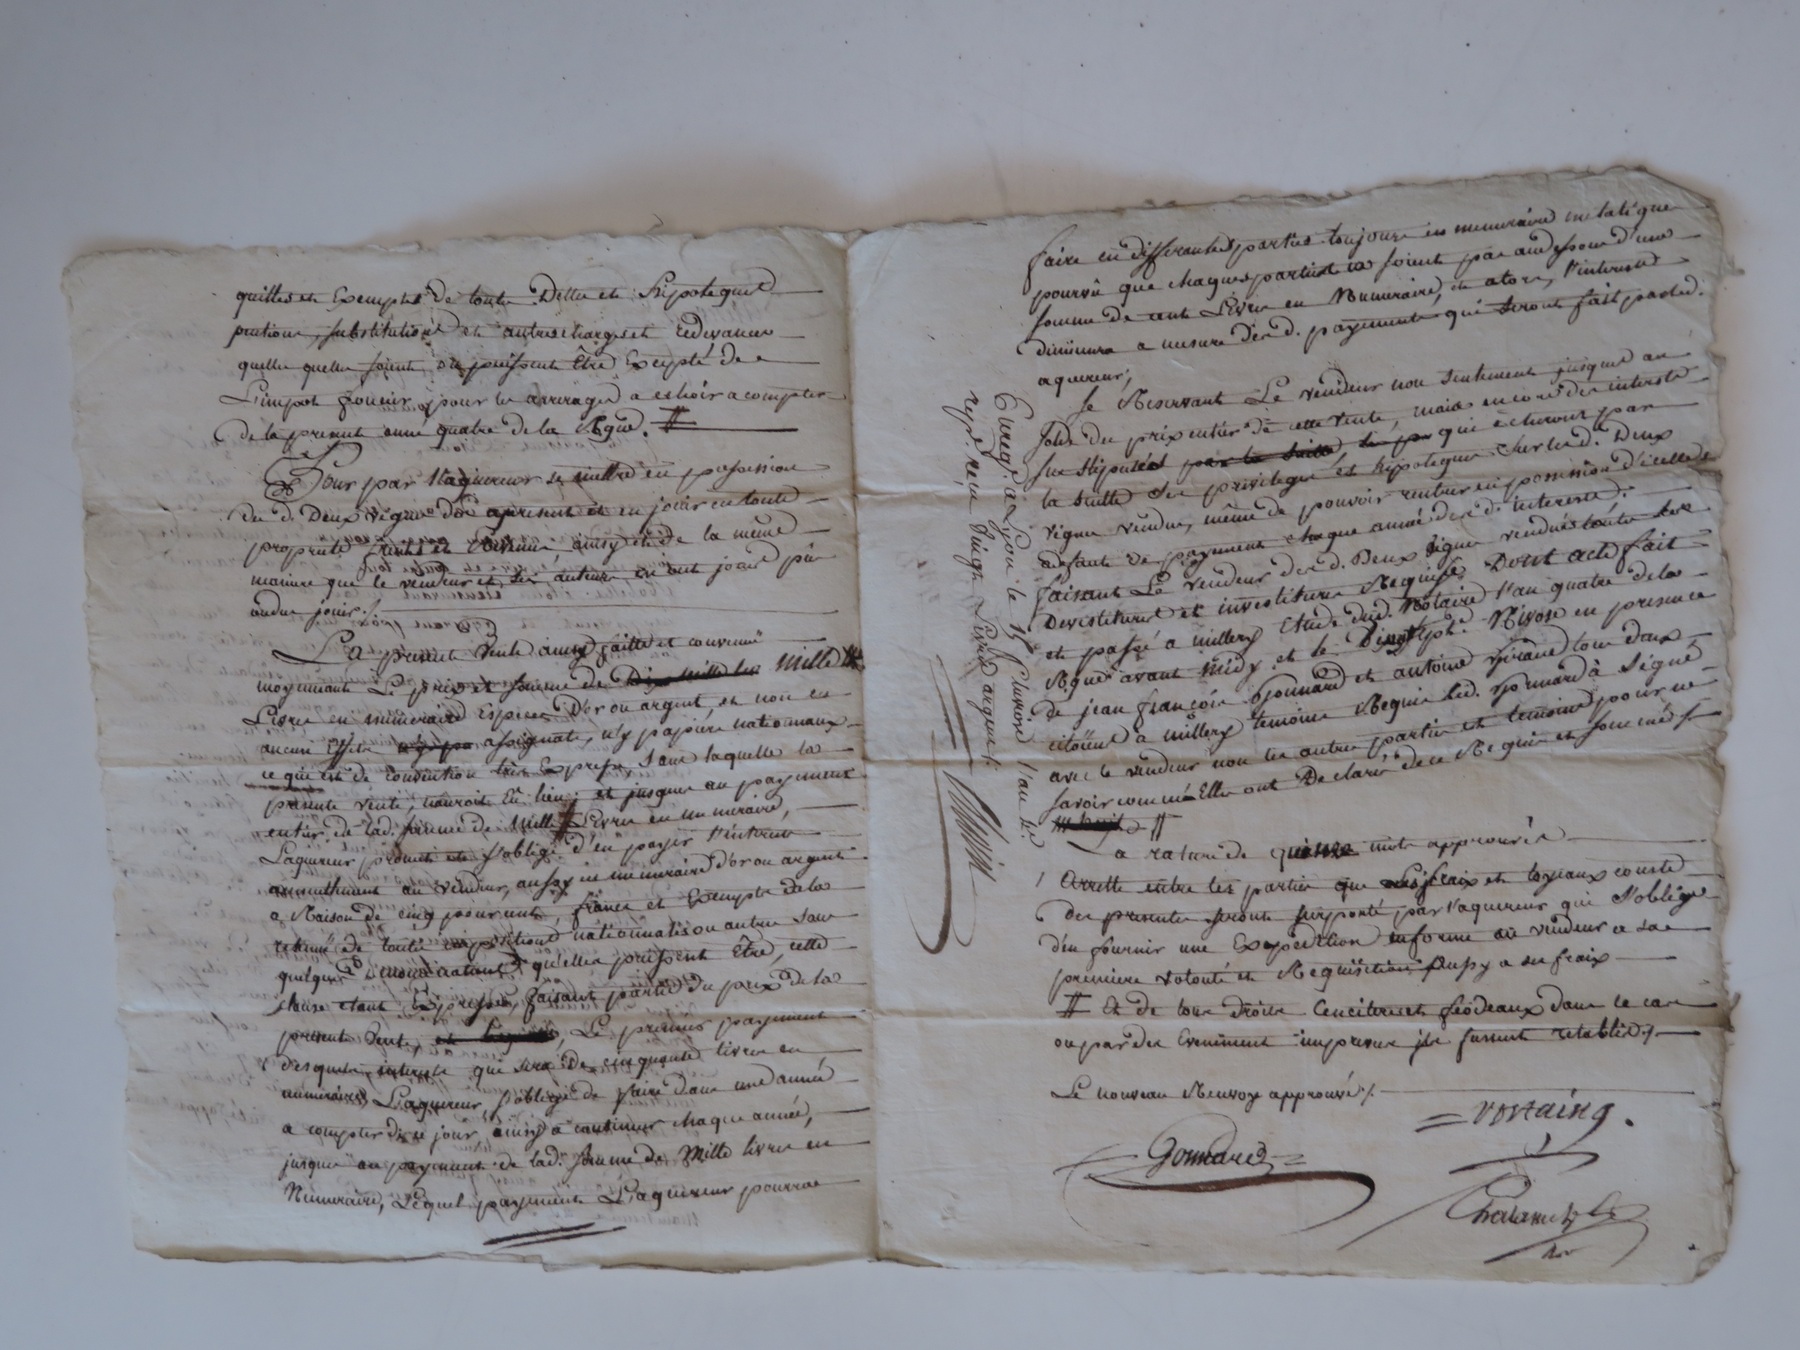 quittes et Exemptes de toutes Dettes et Hipoteques
pentions, substitutions et autres charges et Redevances
quelles quelles soient ou puissent Etre Exepté de
L'impot foncier, pour les arrerages a eshoir a compter
de la presente anné quatre de la Rque. #
Pour par l'aquereur se mettre en possession
des d. Deux vignes des apresent et en jouir en toute
propriété fruits et Revenus, ainsy et de la même
maniere que le vendeur et ses auteurs en ont joui pu
ou du jouir ./.
La presente Vente ainsy faitte et convenuë
moyennant Le prix et somme de mille #
Livres en numeraire Espices D'or ou argent et non en
aucuns Effets assignats, n'y papiers nationnaux
ce qui est de Convention tres Expresse, sans laquelle la
presente vente, n'auroit Eû lieu ; et jusques au payement
entier de lad. somme de Mille Livres en numeraire,
L'aquereur promet et s'oblige d'en payer l'interest
annuellement au vendeur, aussy en numeraire d'or ou argent
a Raison de cinq pour cent, franc et Exempts de la
retenue de toutes impositions nationnales ou autres sous
quelques Denominations qu'elles puissent Être, cette
clause etant Expresse, faisant partie du prix de la
presente Vente, Le premier payement
desquels interests qui sera de cinquante livres en
numeraire L'aquereur s'oblige de faire dans une année
a compter de ce jour, ainsy a continuer chaque année,
jusques au payement de lad. somme de Mille livres en
Numeraire, Lequel payement L'aquereur pourra
faire en differentes parties toujours en numeraire metalique
pourvû que chaques parties ne soient pas audessous d'une
somme de cent Livres en Numeraire, et alors, l'interest
diminura a mesure des d. payements qui seront fait par led.
aquereur ;
Se Reservant Le vendeur non seulement jusques au
solde du prix entier de cette vente, mais encore des interests
sus stipulés qui echeront par
la suitte ses privileges et hypoteques sur les d. Deux
vignes vendues, même de pouvoir rentrer en possession d'icelles
a defaut de payement chaque année des d. interests.
faisant Le vendeur des d. Deux vignes vendues toutes les
Devestitures et investitures Requises Dont acte fait
et passé a millery Etude dud. Notaire l'an quatre de la
Rque avant midy et le Nivose en presence
de jean françois Gonnard et antoine Giraud tous deux
citoyens a millery temoins Requis led. Gonnard à signé
avec le vendeur non les autres parties et temoins pour ne
savoir comme Elles ont Declaré de ce Requis et sommés ./.
#
a rature de quinse mots approuvés
/ Arretté entre les parties que les fraix et loyaux couste
des presentes seront suporté par l'aquereur qui s'oblige
d'en fournir une Expedition en forme au vendeur a sa
premiere volonté et Requisition aussy a ses fraix
# Et de tous droits Cencitaires et feodeaux dans le cas
ou par des Evenement imprevus ils fussent retablis ./.
Le nouveau Renvoy approuvé ./.
Vortaing.
Gonnard
Not.
Enregt. a Lyon le 15 Pluviose l'an 4e.